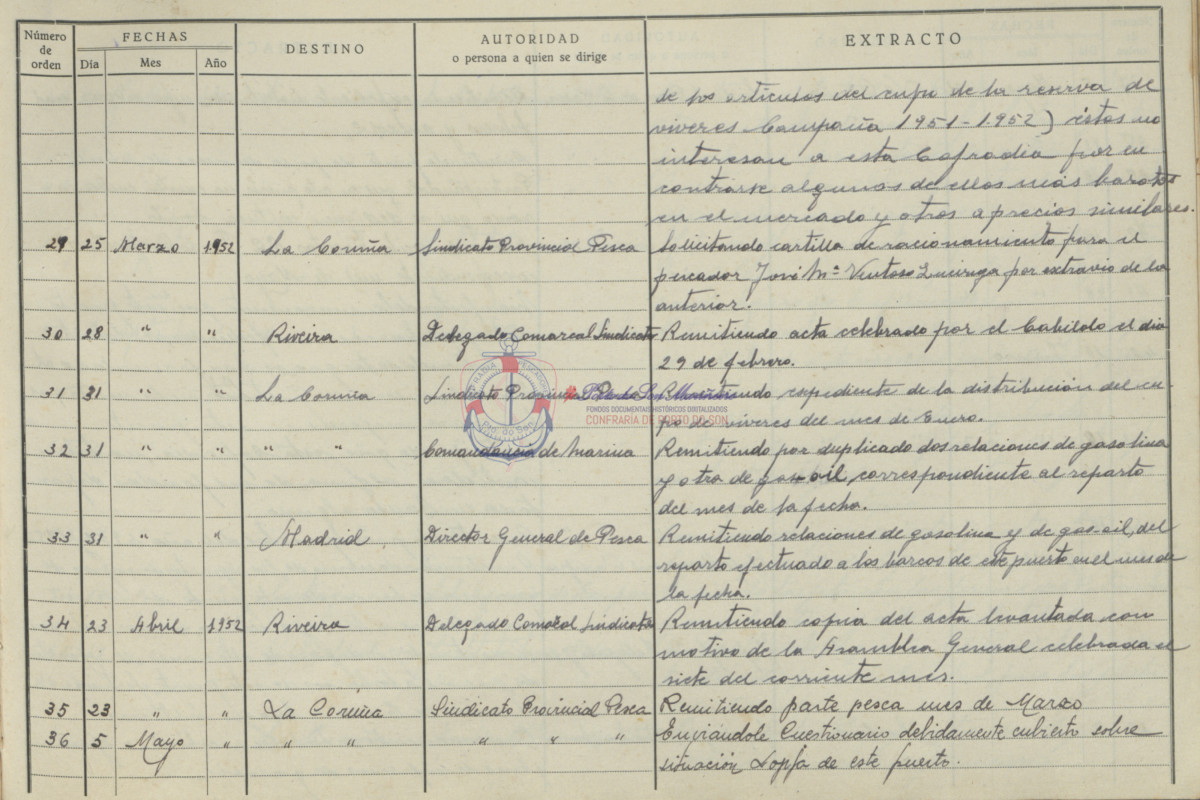 Número de orden FECHAS DESTINO AUTORIDAD o persona a quien se dirige EXTRACTO
Día Mes Año
de los artículos del cupo de la reserva de
viveres Campaña 1951-1952) éstos no
interesan a esta Cofradía por en
contrarse algunos de ellos más baratos
en el mercado y otros a precios similares.
29 25 Marzo 1952 La Coruña Sindicato Provincial Pesca Solicitando cartilla de racionamiento para el
pescador José Mª Ventoso por extravio de la
anterior.
30 28 " " Riveira Delegado Comarcal Sindicatos Remitiendo acta celebrado por el Cabildo el dia
29 de febrero.
31 31 " " La Coruña Sindicato Provincial Pesca Remitiendo expediente de la distribución del cu-
po de viveres del mes de Enero.
32 31 " " " " Comandancia de Marina Remitiendo por duplicado dos relaciones de gasolina
y otra de gas-oil, correspondiente al reparto
del mes de la fecha.
33 31 " " Madrid Director General de Pesca Remitiendo relaciones de gasolina y de gas-oil, del
reparto efectuado a los barcos de este puerto en el mes de
la fecha.
34 23 Abril 1952 Riveira Delegado Comarcal Sindicatos Remitiendo copia del acta levantada con
motivo de la Asamblea General celebrada el
siete del corriente mes.
35 23 " " La Coruña Sindicato Provincial Pesca Remitiendo parte pesca mes de Marzo
36 5 Mayo " " " " " " Enviandole Cuestionario debidamente cubierto sobre
situación de este puerto.
FONDOS DOCUMENTAIS HISTÓRICOS DIXITALIZADOS
CONFRARÍA DE PORTO DO SON